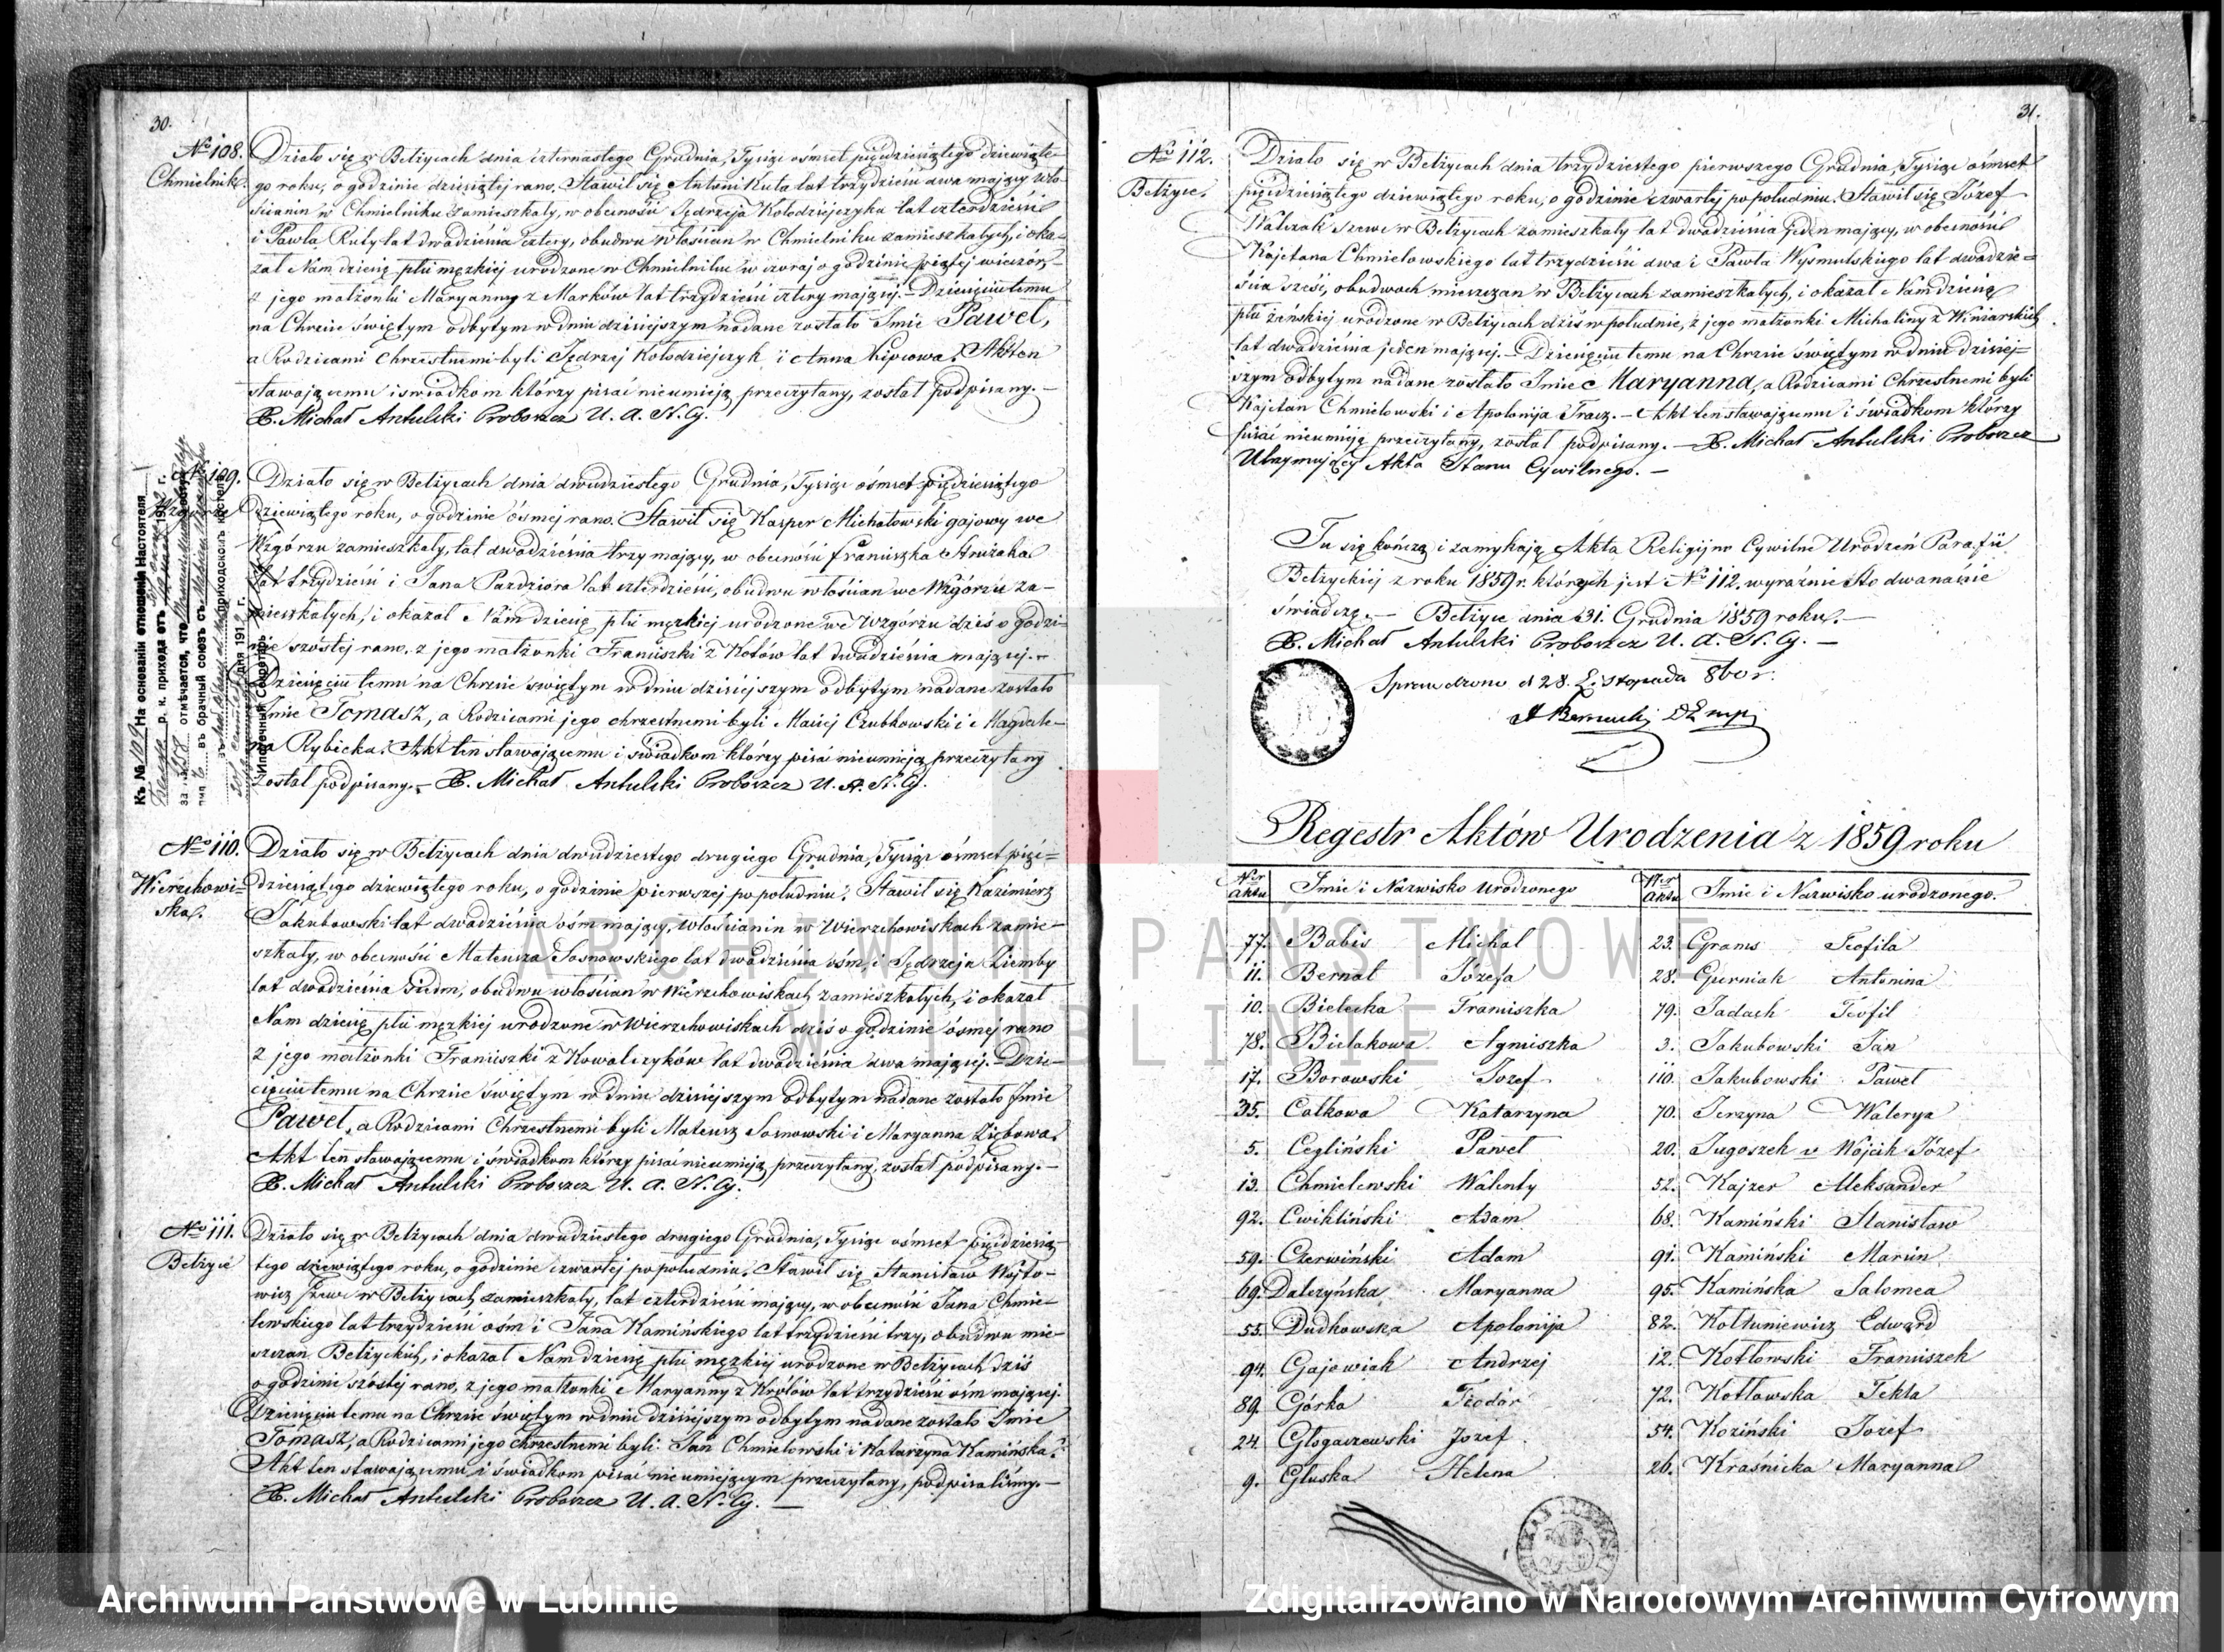 30.
No 108.
Chmielnik.
Działo się w Bełżycach dnia czternastego Grudnia, Tysiąc ośmset pięćdziesiątego dziewiąte-
go roku, o godzinie dziesiątej rano. Stawił się Antoni Kuta lat trzydzieści dwa mający wło-
ścianin w Chmielniku zamieszkały, w obecności Jędrzeja Kołodziejczyka lat czterdzieści
i Pawła Ruty lat dwadzieścia cztery, obudwu włościan w Chmielniku zamieszkałych, i oka-
zał Nam dziecię płci męzkiej urodzone w Chmielniku wczoraj o godzinie piątej wieczor,
z jego małżonki Maryanny z Marków lat trzydzieści cztery mającej. – Dziecięciu temu
na Chrzcie świętym odbytym w dniu dzisiejszym nadane zostało Imie Paweł,
a Rodzicami Chrzestnemi byli Jędrzej Kołodziejczyk i Anna Lipcowa. Akt ten
stawającemu i świadkom którzy pisać nieumieją przeczytany, został podpisany. –
X. Michał Antulski Proboszcz U. A. S. Cy.
No 109.
Wzgórze
Działo się w Bełżycach dnia dwudziestego Grudnia, Tysiąc ośmset pięćdziesiątego
dziewiątego roku, o godzinie ósmej rano. Stawił się Kasper Michałowski gajowy we
Wzgórzu zamieszkały, lat dwadzieścia trzy mający, w obecności Franciszka Struzaka
lat trzydzieści i Jana Pazdziora lat czterdzieści, obudwu włościan we Wzgórzu za-
mieszkałych, i okazał Nam dziecię płci męzkiej urodzone we Wzgórzu dziś o godzi-
nie szóstej rano, z jego małżonki Franciszki z Kotów lat dwadzieścia mającej. –
Dziecięciu temu na Chrzcie świętym w dniu dzisiejszym odbytym nadane zostało
Imie Tomasz, a Rodzicami jego chrzestnemi byli Maciej Czubkowski i Magdale-
na Rybicka. Akt ten stawającemu i świadkom którzy pisać nieumieją przeczytany
został podpisany. – X. Michał Antulski Proboszcz U. A. S. Cy.
На основании отношенія Настоятеля
р. к. прихода отъ
отмѣчается, что
въ брачный союзъ съ
приходскомъ костелѣ
дня 191 г.
Ипотечный Секретарь
No 110.
Wierzchowi-
ska.
Działo się w Bełżycach dnia dwudziestego drugiego Grudnia, Tysiąc ośmset pięć-
dziesiątego dziewiątego roku, o godzinie pierwszej po południu. Stawił się Kazimierz
Jakubowski lat dwadzieścia ośm mający, włościanin w Wierzchowiskach zamie-
szkały, w obecności Mateusza Sosnowskiego lat dwadzieścia ośm, i Jędrzeja Ziemby
lat dwadzieścia siedm, obudwu włościan w Wierzchowiskach zamieszkałych, i okazał
Nam dziecię płci męzkiej urodzone w Wierzchowiskach dziś o godzinie ósmej rano
z jego małżonki Franciszki z Kowalczyków lat dwadzieścia dwa mającej. – Dzie-
cięciu temu na Chrzcie świętym w dniu dzisiejszym odbytym nadane zostało Imie
Paweł, a Rodzicami Chrzestnemi byli Mateusz Sosnowski i Maryanna Ziębowa.
Akt ten stawającemu i świadkom którzy pisać nieumieją przeczytany, został podpisany. –
X. Michał Antulski Proboszcz U. A. S. Cy.
No 111.
Bełżyce
Działo się w Bełżycach dnia dwudziestego drugiego Grudnia, Tysiąc ośmset pięćdziesią-
tego dziewiątego roku, o godzinie czwartej po południu. Stawił się Stanisław Wójto-
wicz szewc w Bełżycach zamieszkały, lat czterdzieści mający, w obecności Jana Chmie-
lewskiego lat trzydzieści ośm i Jana Kamińskiego lat trzydzieści trzy, obudwu mie-
szczan Bełżyckich, i okazał Nam dziecię płci męzkiej urodzone w Bełżycach dziś
o godzinie szóstej rano, z jego małżonki Maryanny z Królów lat trzydzieści ośm mającej.
Dziecięciu temu na Chrzcie świętym w dniu dzisiejszym odbytym nadane zostało Imie
Tomasz, a Rodzicami jego chrzestnemi byli Jan Chmielowski i Katarzyna Kamińska.
Akt ten stawającemu i świadkom pisać nieumiejącym przeczytany, podpisaliśmy. –
X. Michał Antulski Proboszcz U. A. S. Cy. –
31.
No 112.
Bełżyce.
Działo się w Bełżycach dnia trzydziestego pierwszego Grudnia, Tysiąc ośmset
pięćdziesiątego dziewiątego roku, o godzinie czwartej po południu. Stawił się Józef
Walczak szewc w Bełżycach zamieszkały lat dwadzieścia jeden mający, w obecności
Kajetana Chmielowskiego lat trzydzieści dwa i Pawła Wysmulskiego lat dwadzie-
ścia sześć, obudwoch mieszczan w Bełżycach zamieszkałych, i okazał Nam dziecię
płci żeńskiej urodzone w Bełżycach dziś w południe, z jego małżonki Michaliny z Winiarskich
lat dwadzieścia jeden mającej. – Dziecięciu temu na Chrzcie świętym w dniu dzisiej-
szym odbytym nadane zostało Imie Maryanna, a Rodzicami Chrzestnemi byli
Kajetan Chmielowski i Apolonija Tracz. – Akt ten stawającemu i świadkom którzy
pisać nieumieją przeczytany, został podpisany. – X. Michał Antulski Proboszcz
Utrzymujący Akta Stanu Cywilnego. –
Tu się kończą i zamykają Akta Religijno Cywilne Urodzeń Parafii
Bełżyckiej z roku 1859 r. których jest No 112. wyraźnie Sto dwanaście
świadczę. – Bełżyce dnia 31. Grudnia 1859 roku. –
X. Michał Antulski Proboszcz U. A. S. Cy. –
Sprawdzono d 28. Listopada 860 r.
Regestr Aktów Urodzenia z 1859 roku
Ner Aktu Imie i Nazwisko urodzonego Ner Aktu Imie i Nazwisko urodzonego.
77. Babis Michał 23. Grams Teofila
11. Bernat Józefa 28. Gurniak Antonina
10. Bielecka Franciszka 79. Jadach Teofil
78. Bielakowa Agniszka 3. Jakubowski Jan
17. Borowski Jozef 110. Jakubowski Paweł
35. Całkowa Katarzyna 70. Jerzyna Walerya
5. Cegliński Paweł 20. Jugoszek v Wójcik Józef
13. Chmielewski Walenty 52. Kajzer Aleksander
92. Cwikliński Adam 68. Kamiński Stanisław
59. Czerwiński Adam 91. Kamiński Marcin
69. Daleczyńska Maryanna 95. Kamińska Salomea
55. Dudkowska Apolonija 82. Kołtuniewicz Edward
94. Gajowiak Andrzej 12. Kotłowski Franciszek
89. Górka Teodór 72. Kotłowska Tekla
24. Głogaszewski Jozef 54. Koziński Jozef
9. Głuska Helena 26. Kraśnicka Maryanna
ARCHIWUM PAŃSTWOWE
W LUBLINIE
Archiwum Państwowe w Lublinie
Zdigitalizowano w Narodowym Archiwum Cyfrowym